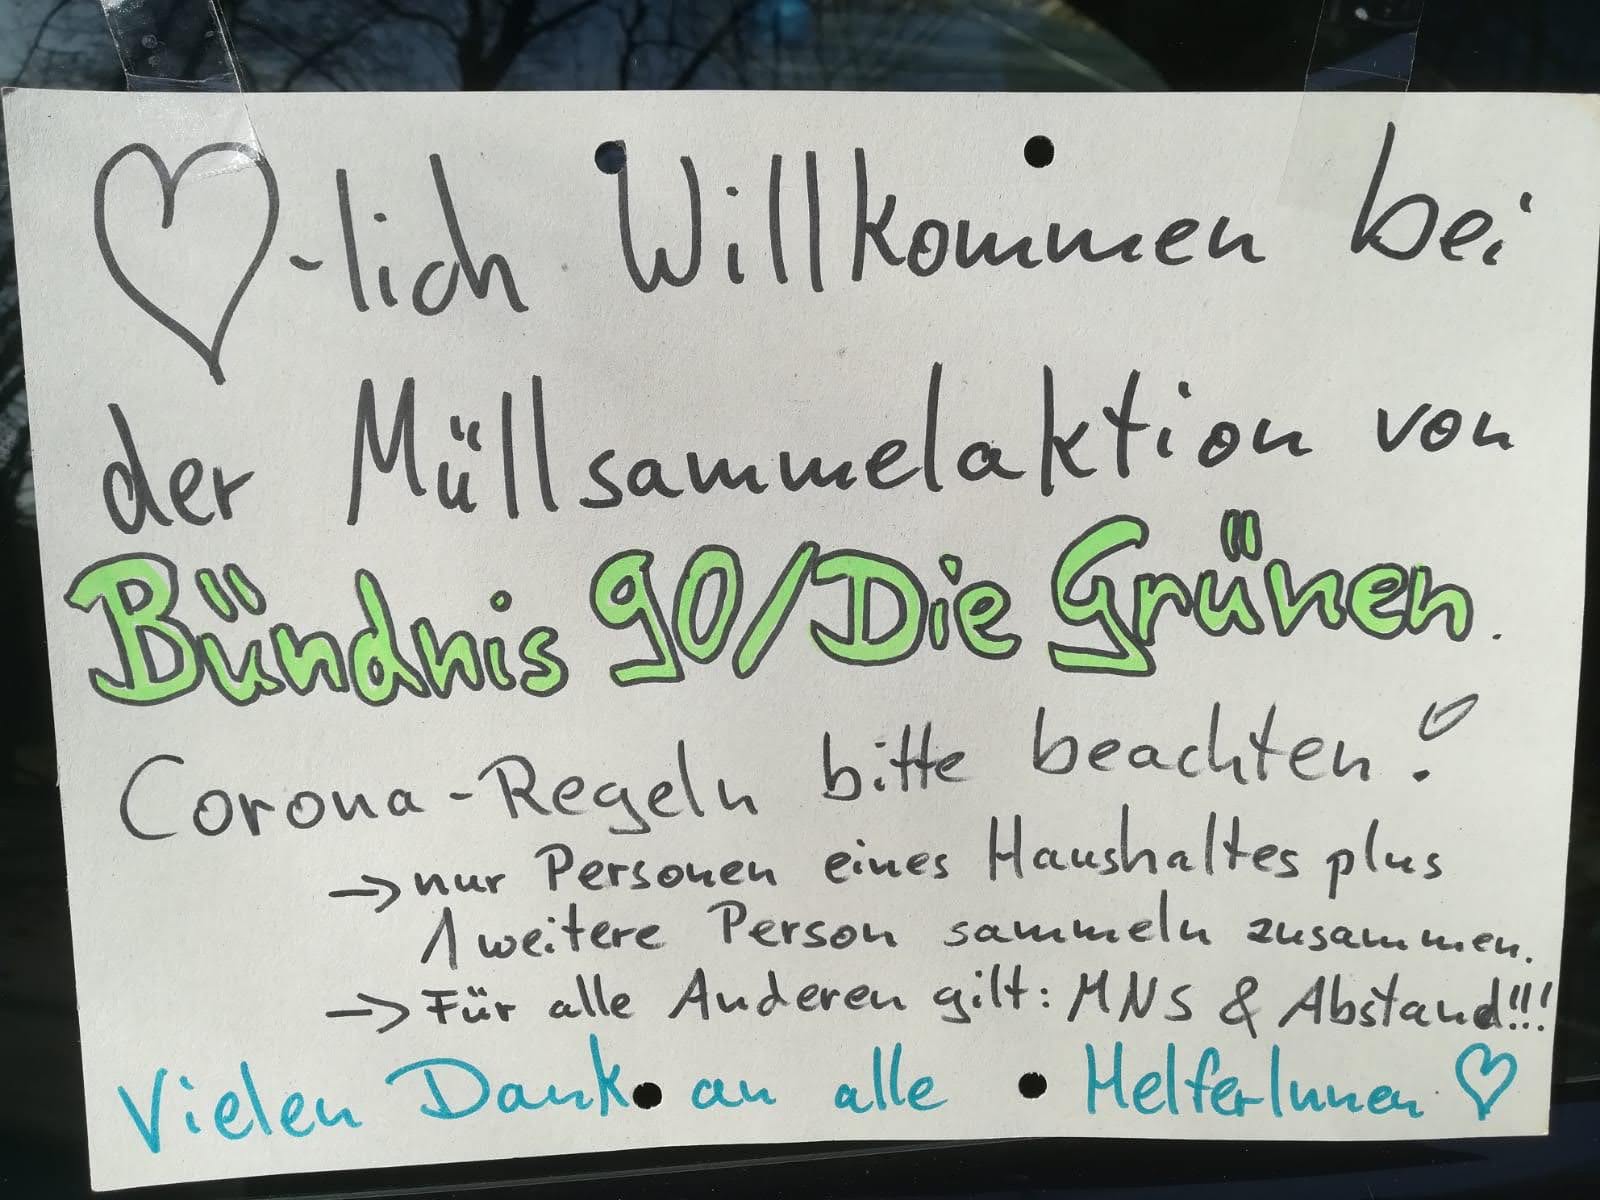 ♡-lich Willkommen bei
der Müllsammelaktion von
Bündnis 90/Die Grünen.
Corona-Regeln bitte beachten!
→ nur Personen eines Haushaltes plus
1 weitere Person sammeln zusammen.
→ Für alle Anderen gilt: MNS & Abstand!!!
Vielen Dank an alle HelferInnen ♡